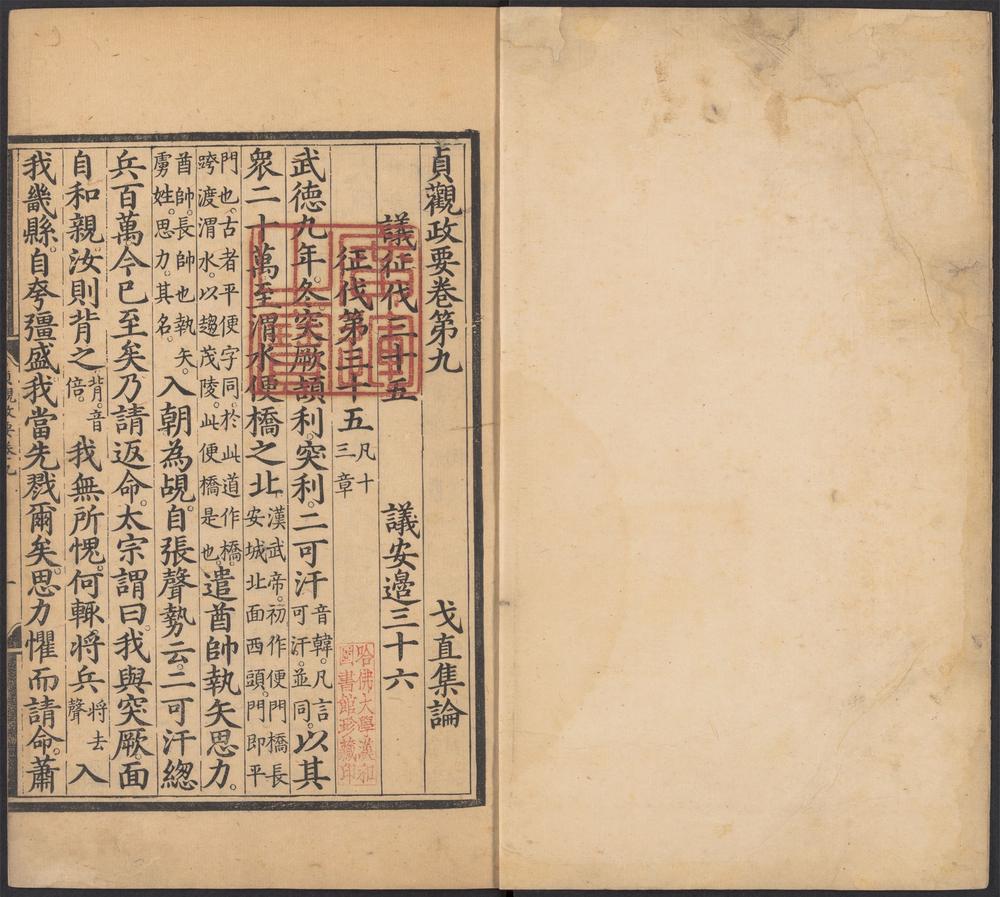 貞觀政要卷第九
戈直集論
議征伐三十五 議安邊三十六
征伐第三十五凡十三章
武德九年。冬。突厥頡利。突利。二可汗音韓。凡言可汗。並同。以其
衆二十萬至渭水便橋之北漢武帝。初作便門橋長安城北面西頭。門即平
門也。古者平便字同。於此道作橋。跨渡渭水。以趨茂陵。此便橋是也。遣酋帥執矢思力。
酋帥。長帥也執矢。虜姓。思力。其名。入朝為覘。自張聲勢云。二可汗緫
兵百萬今已至矣乃請返命。太宗謂曰。我與突厥。面
自和親。汝則背之背。音倍。我無所愧。何輒將兵將去聲入
我畿縣。自夸彊盛。我當先戮爾矣。思力懼而請命。蕭
哈佛大學漢和
圖書館珍藏印